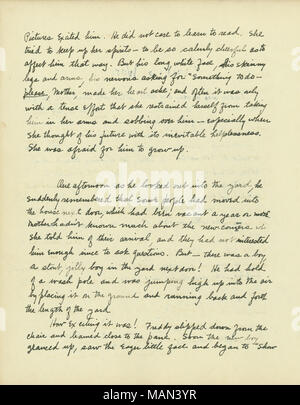 Pictures excited him. He did not care to learn to read. She
tried to keep up her spirits – to be so calmly cheerful as to
affect him that way. But his long white face, his skinny
legs and arms, his nervous asking for "Something to do –
please, Mother, made her heart ache; and often it was only
with a tense effort that she restrained herself from taking
him in her arms and sobbing over him – especially when
she thought of his future with its inevitable helplessness.
She was afraid for him to grow up.
One afternoon as he looked out into the yard, he
suddenly remembered that some people had moved into
the house next door, which had been vacant a year or more.
Mother hadn't known much about the newcomers when
she told him of their arrival, and they had not interested
him enough since to ask questions. But – there was a boy
a stout jolly boy in the yard next door! He had hold
of a wash pole and was jumping high up into the air
by placing it on the ground and running back and forth
the length of the yard.
How exciting it was! Freddy slipped down from the
chair and leaned close to the pane. Soon the new boy
glanced up, saw the eager little face and began to "show
alamy
Image ID: MAN3YR
www.alamy.com